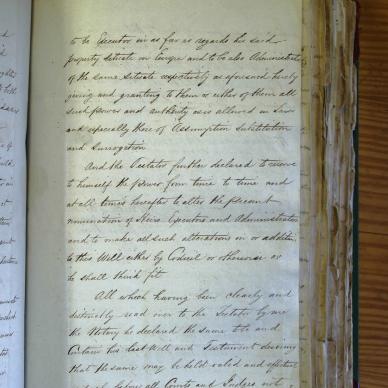 to be Executor in as far as regards his said
property situate in Europe and to be also Administrator
of the same situate respectively as aforesaid hereby
giving and granting to them or either of them all
such power and authority as is allowed in Law
and especially those of Assumption Substitution
and Surrogation
And the Testator further declared to reserve
to himself the power from time to time and
at all times hereafter to alter the present
nomination of Heirs Executors and Administrators
and to make all such alterations in or addition
to this Will either by Codicil or otherwise as
he shall think fit
All which having been clearly and
distinctly read over to the Testator by me
the Notary he declared the same to be and
Contain his last Will and Testament desiring
that the same may be held valid and effectual
before all Courts and Judges not